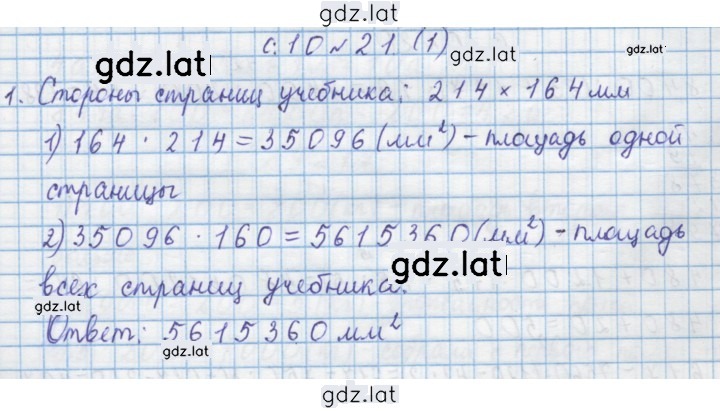 gdz.lat
с.10 №21 (1)
gdz.lat
1. Стороны страниц учебника: 214 × 164 мм
1) 164 · 214 = 35096 (мм²) – площадь одной
страницы
2) 35096 · 160 = 5615360 (мм²) – площадь
всех страниц учебника.
gdz.lat
gdz.lat
Ответ: 5615360 мм²
gdz.lat
gdz.lat